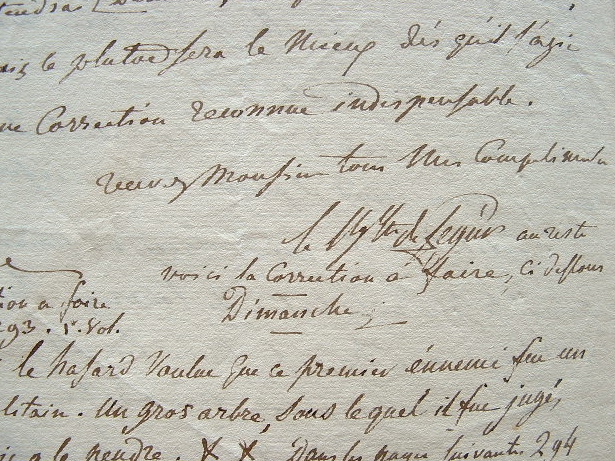 mais le plutot sera le mieux dés qu'il s'agit
une Correction reconnue indispensable.
recevez Monsieur tous Mes Complimens
le de Ségur au reste
voici la Correction a faire, ci dessous
Dimanche
tion a foire
293. 1r. Vol.
le hasard Voulue que ce premier énnemi feu un
litain. un gros arbre, sous lequel il fue jugés
a le pendre. X X dans les pages suivantes 294